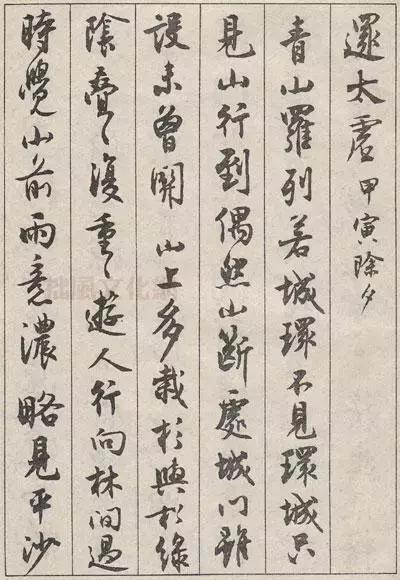 邏太虛 甲寅除夕
青山羅列若城環不見環城只
見山行到偶然山斷處城門雖
設未曾關 山上多栽杉與松綠
陰疊〻復重〻遊人行向林間過
時覺山前雨意濃 略見平沙